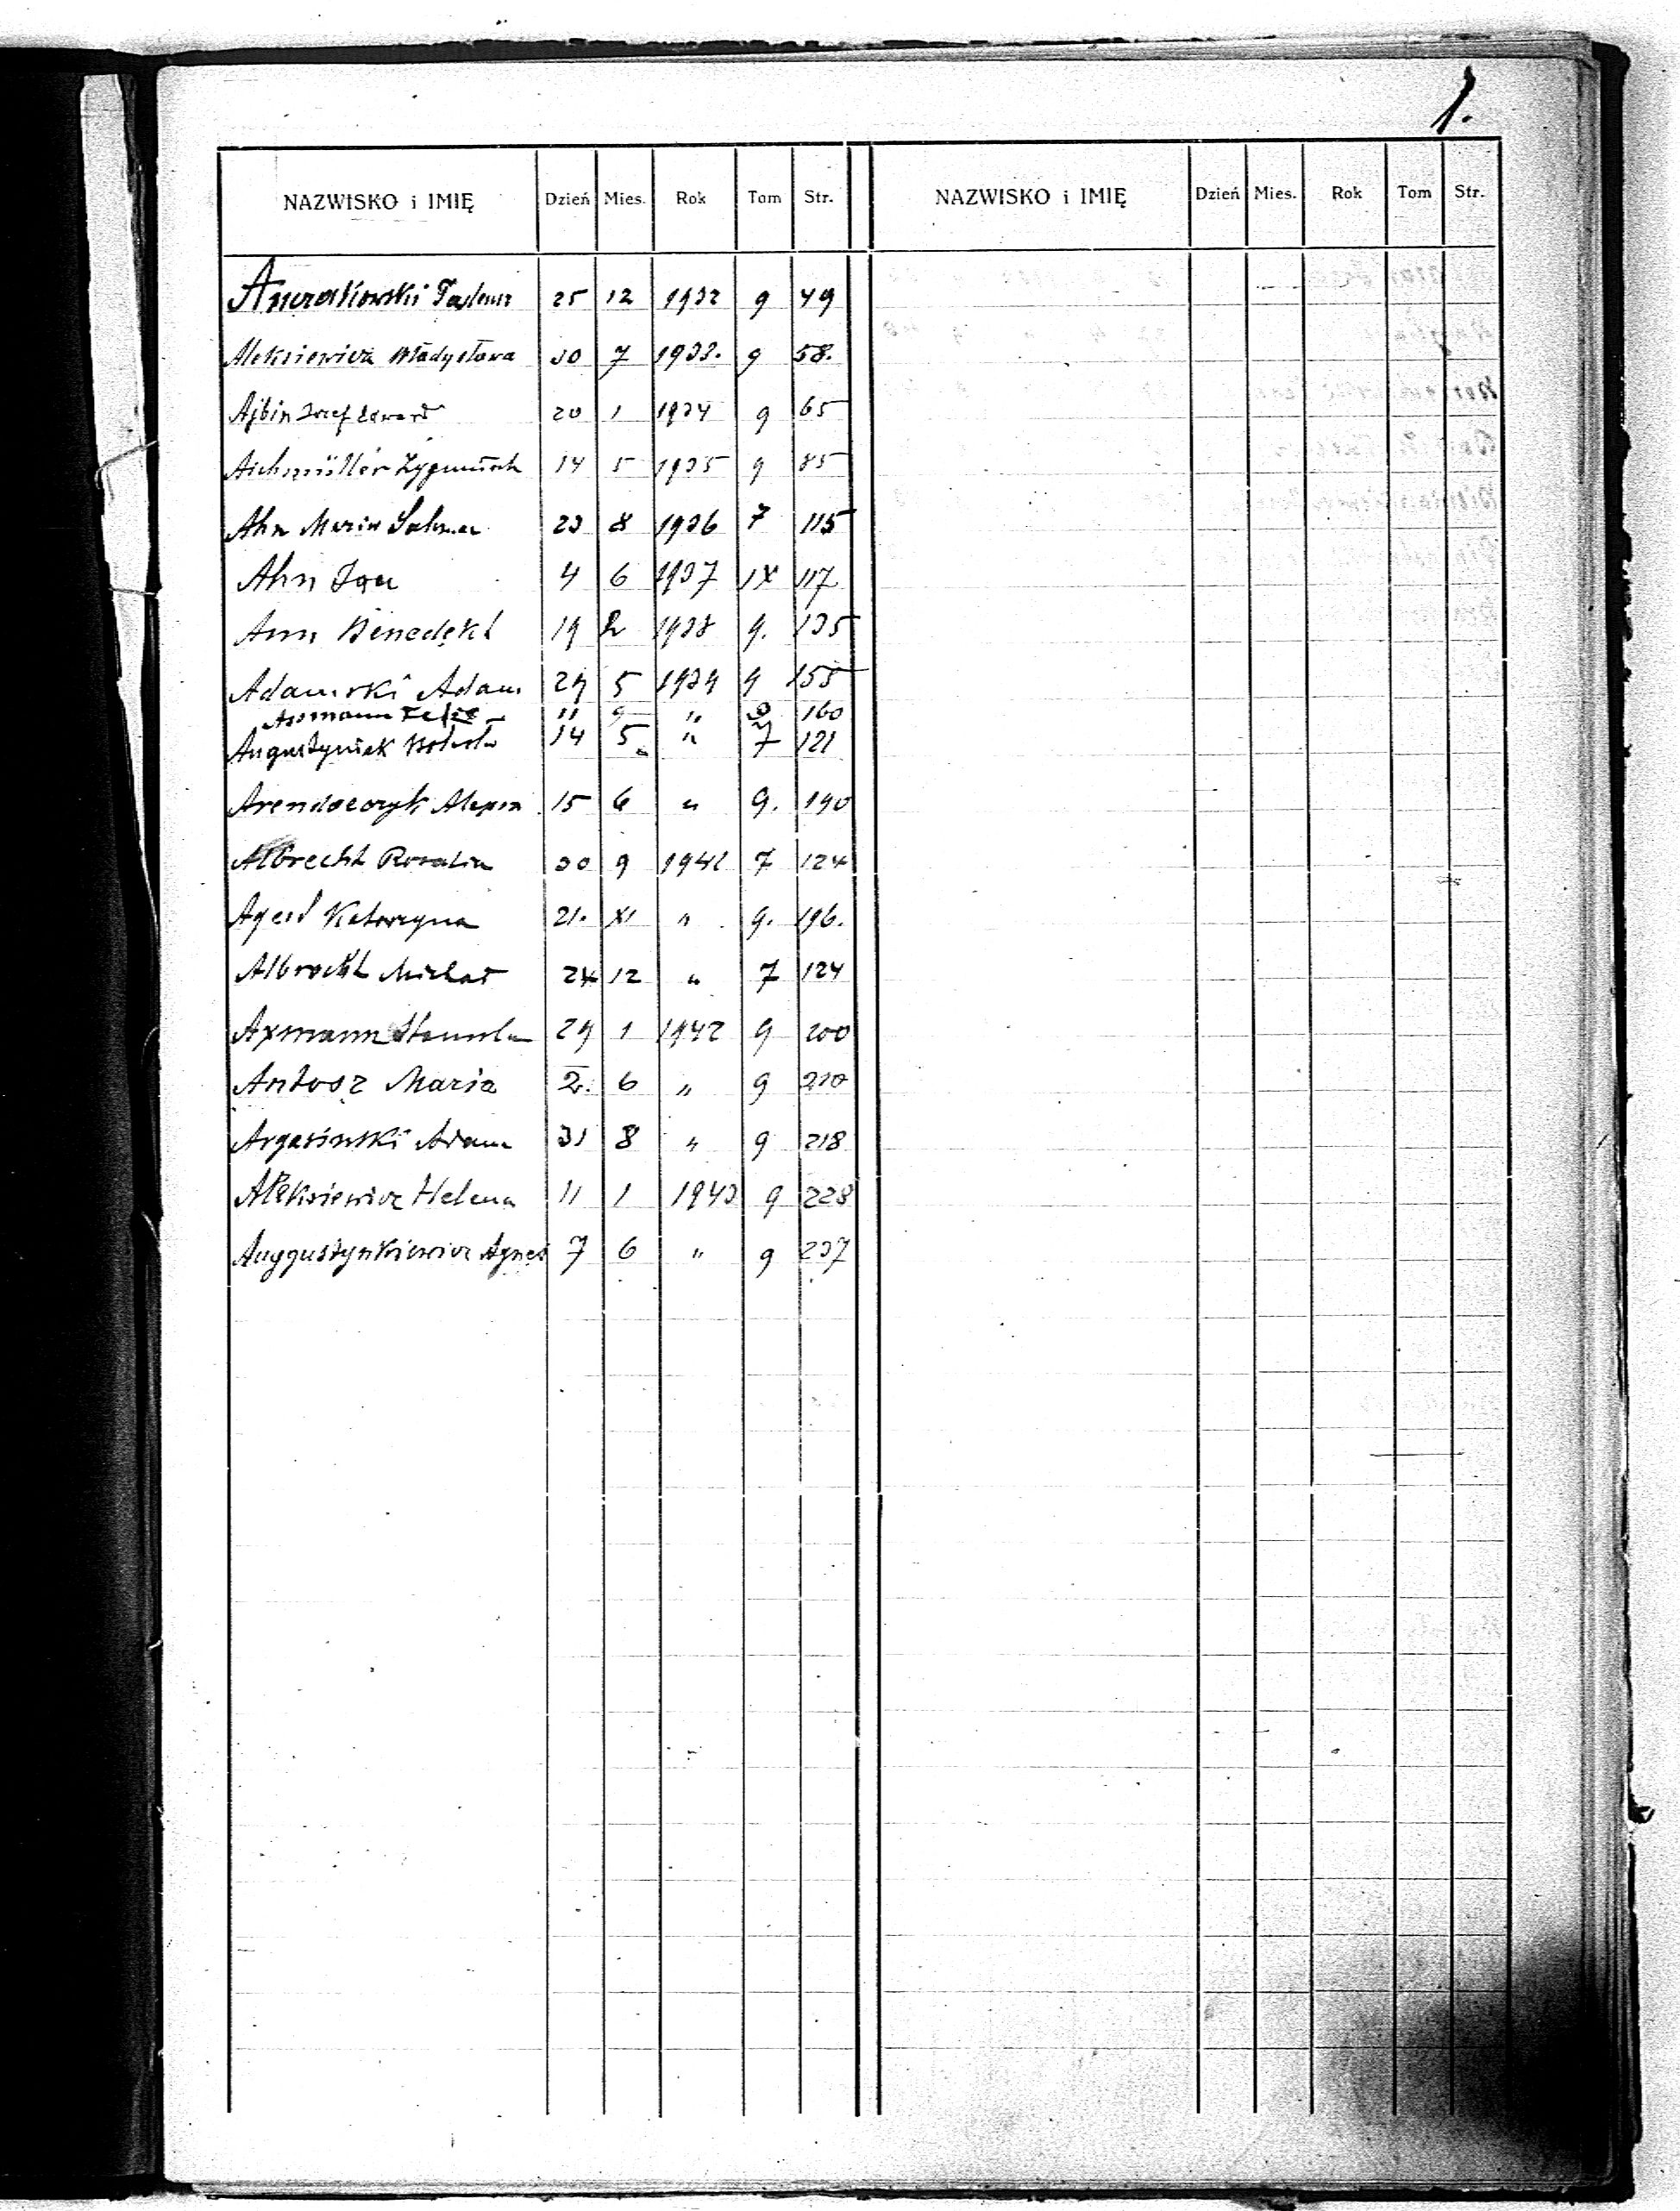 1.
NAZWISKO i IMIĘ Dzień Mies. Rok Tom Str. NAZWISKO i IMIĘ Dzień Mies. Rok Tom Str.
25 12 1932 9 49
Aleksiewicz Władysława 30 7 1933. 9 58.
Ajbin Józef Edward 20 1 1934 9 65
Aichmüller Zygmunt 14 5 1935 9 85
Ahn Maria 23 8 1936 7 115
Ahn Jan 4 6 1937 IX 117
Ann Benedekt 19 2 1938 9. 135
Adamski Adam 29 5 1939 9 155
Assmann 11 9 " 160
Augustyniak 14 5 " 7 121
15 6 " 9. 190
Albrecht Rozalia 30 9 1941 7 124
Katarzyna 21. XI " 9. 196.
Albrecht Michał 24 12 " 7 124
Axmann 29 1 1942 9 200
Antosz Maria 2. 6 " 9 210
Argasiński Adam 31 8 " 9 218
Aleksiewicz Helena 11 1 1943 9 228
Auggustynkiewicz Agnes 7 6 " 9 237